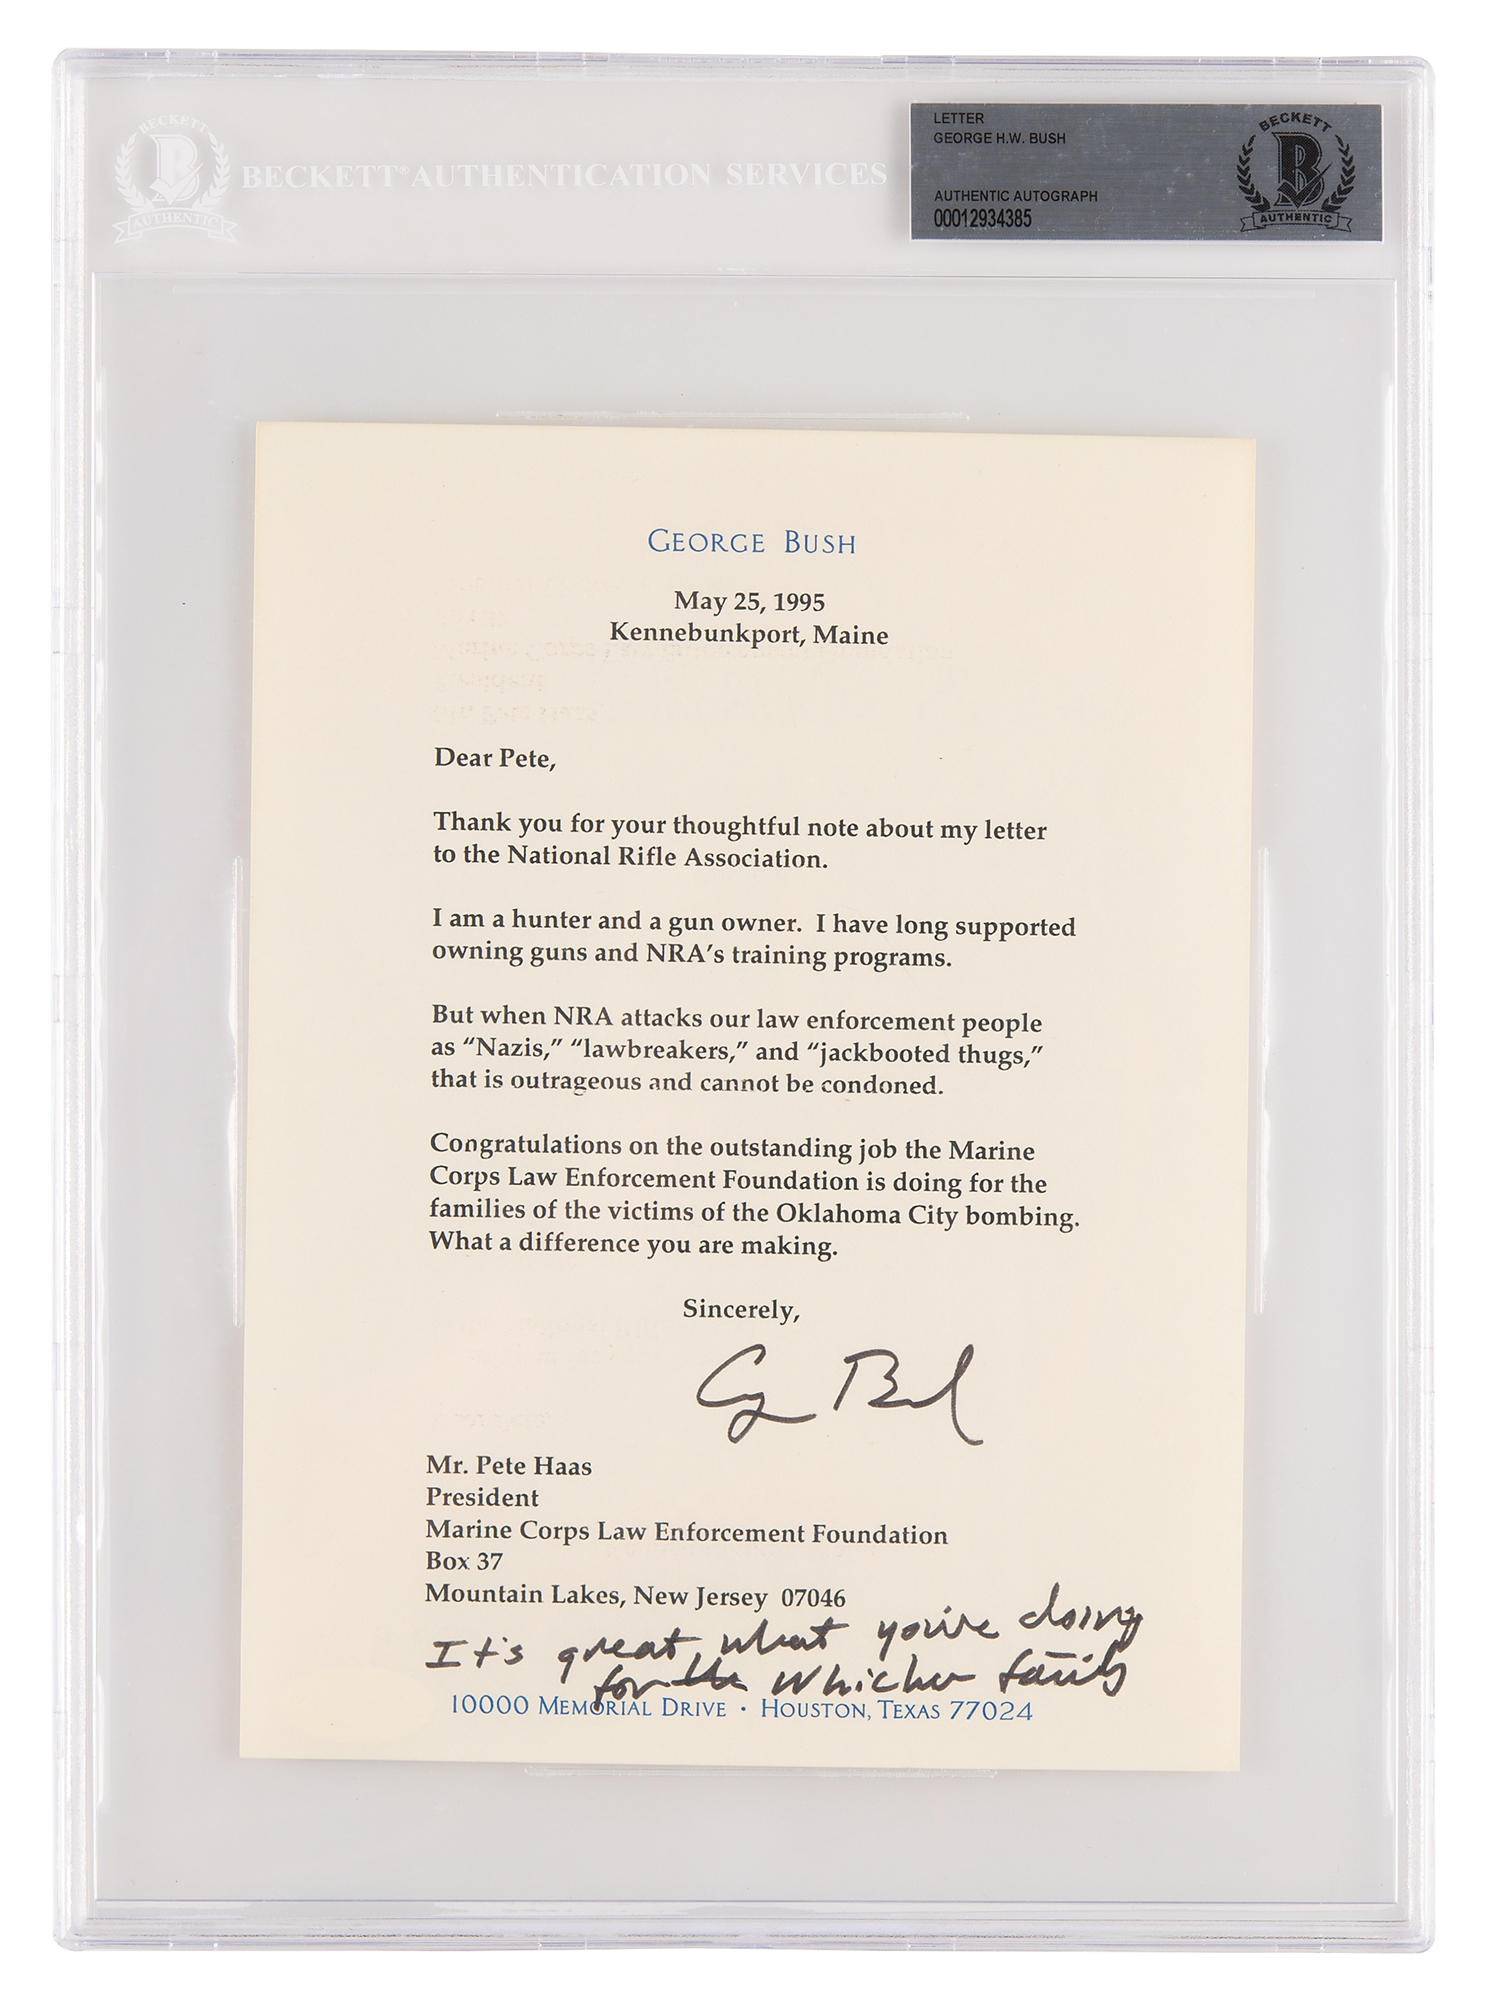 BECKETT
AUTHENTIC
BECKETT® AUTHENTICATION SERVICES
LETTER
GEORGE H.W. BUSH
AUTHENTIC AUTOGRAPH
00012934385
BECKETT
B
AUTHENTIC
GEORGE BUSH
May 25, 1995
Kennebunkport, Maine
Dear Pete,
Thank you for your thoughtful note about my letter
to the National Rifle Association.
I am a hunter and a gun owner. I have long supported
owning guns and NRA's training programs.
But when NRA attacks our law enforcement people
as “Nazis,” “lawbreakers,” and “jackbooted thugs,”
that is outrageous and cannot be condoned.
Congratulations on the outstanding job the Marine
Corps Law Enforcement Foundation is doing for the
families of the victims of the Oklahoma City bombing.
What a difference you are making.
Sincerely,
G Bush
Mr. Pete Haas
President
Marine Corps Law Enforcement Foundation
Box 37
Mountain Lakes, New Jersey 07046
It's great what you're doing
for the Whicher family
10000 MEMORIAL DRIVE • HOUSTON, TEXAS 77024